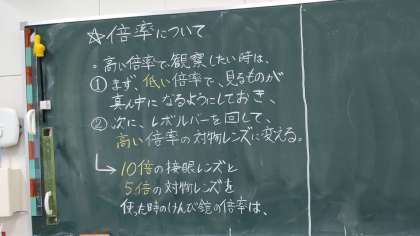 ☆倍率について
・高い倍率で観察したい時は、
① まず、低い倍率で、見るものが
真ん中になるようにしておき、
② 次に、レボルバーを回して、
高い倍率の対物レンズに変える。
↳ 10倍の接眼レンズと
5倍の対物レンズを
使った時のけんび鏡の倍率は、